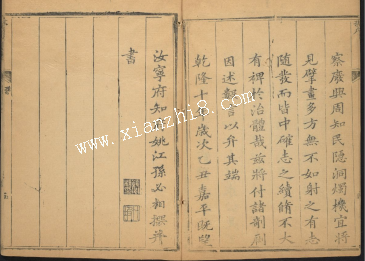 察廣興周知民隱洞燭機宜將
見擘畫多方無不如射之有志
随發而皆中確志之績脩不大
有裨於治體哉茲將付諸剞劂
因述數言以弁其端
乾隆十年歲次乙丑嘉平既望
汝寧府知府姚江孫必相撰并
書
www.xianzhi8.com